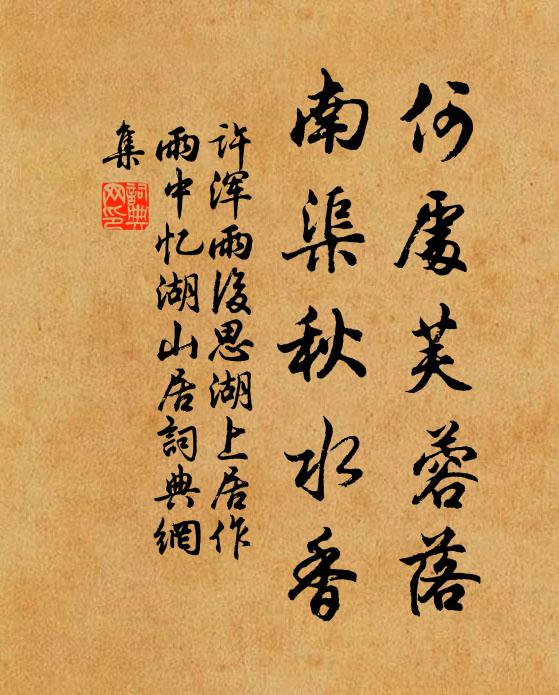 何處芙蓉落
南渠秋水香
许渾雨後思湖上居作
雨中忆湖山居詞典網
集
詞典网印